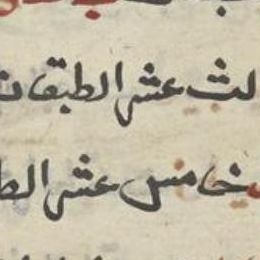 لث عشر الطبقات
خامس عشر الط